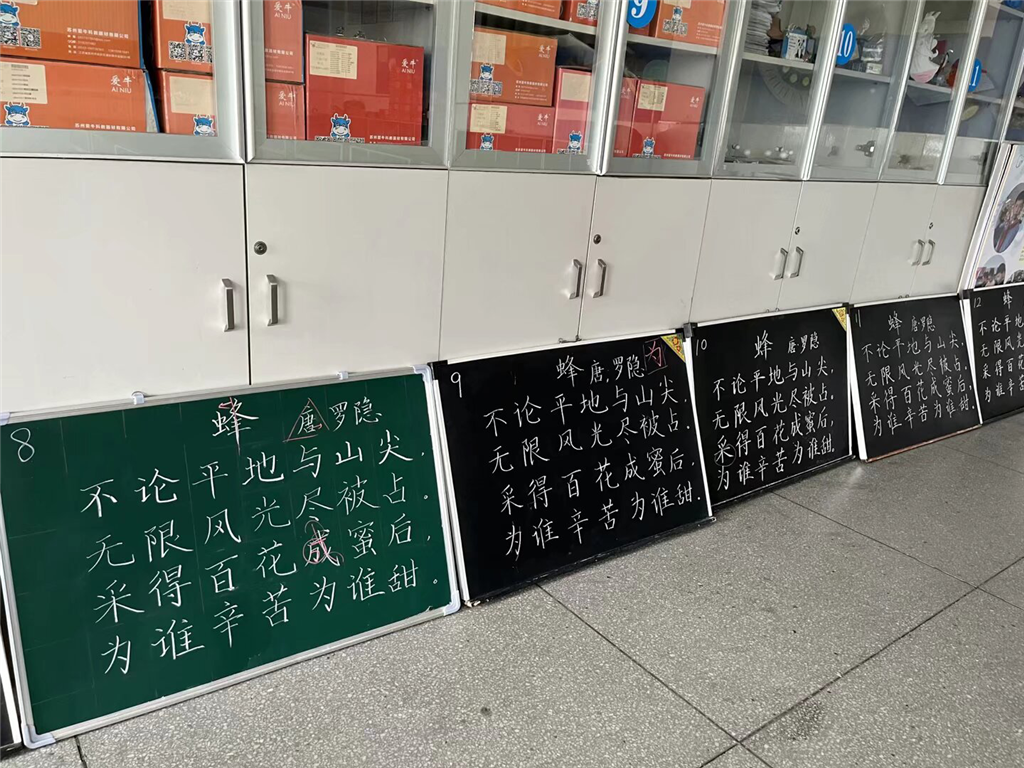 9
10
爱牛
AI NIU
爱牛
AI NIU
爱牛
AI NIU
爱牛
AI NIU
爱牛
8
蜂 唐 罗隐
不论平地与山尖,
无限风光尽被占。
采得百花成蜜后,
为谁辛苦为谁甜。
9
蜂 唐.罗隐 为
不论平地与山尖,
无限风光尽被占.
采得百花成蜜后,
为谁辛苦为谁甜.
10
蜂 唐.罗隐
不论平地与山尖,
无限风光尽被占.
采得百花成蜜后,
为谁辛苦为谁甜.
11
蜂 唐.罗隐
不论平地与山尖,
无限风光尽被占.
采得百花成蜜后,
为谁辛苦为谁甜.
12
蜂
不论平地
无限风光
采得百花
为谁辛苦